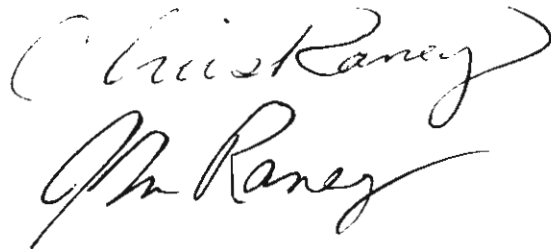 Chris Raney
Raney